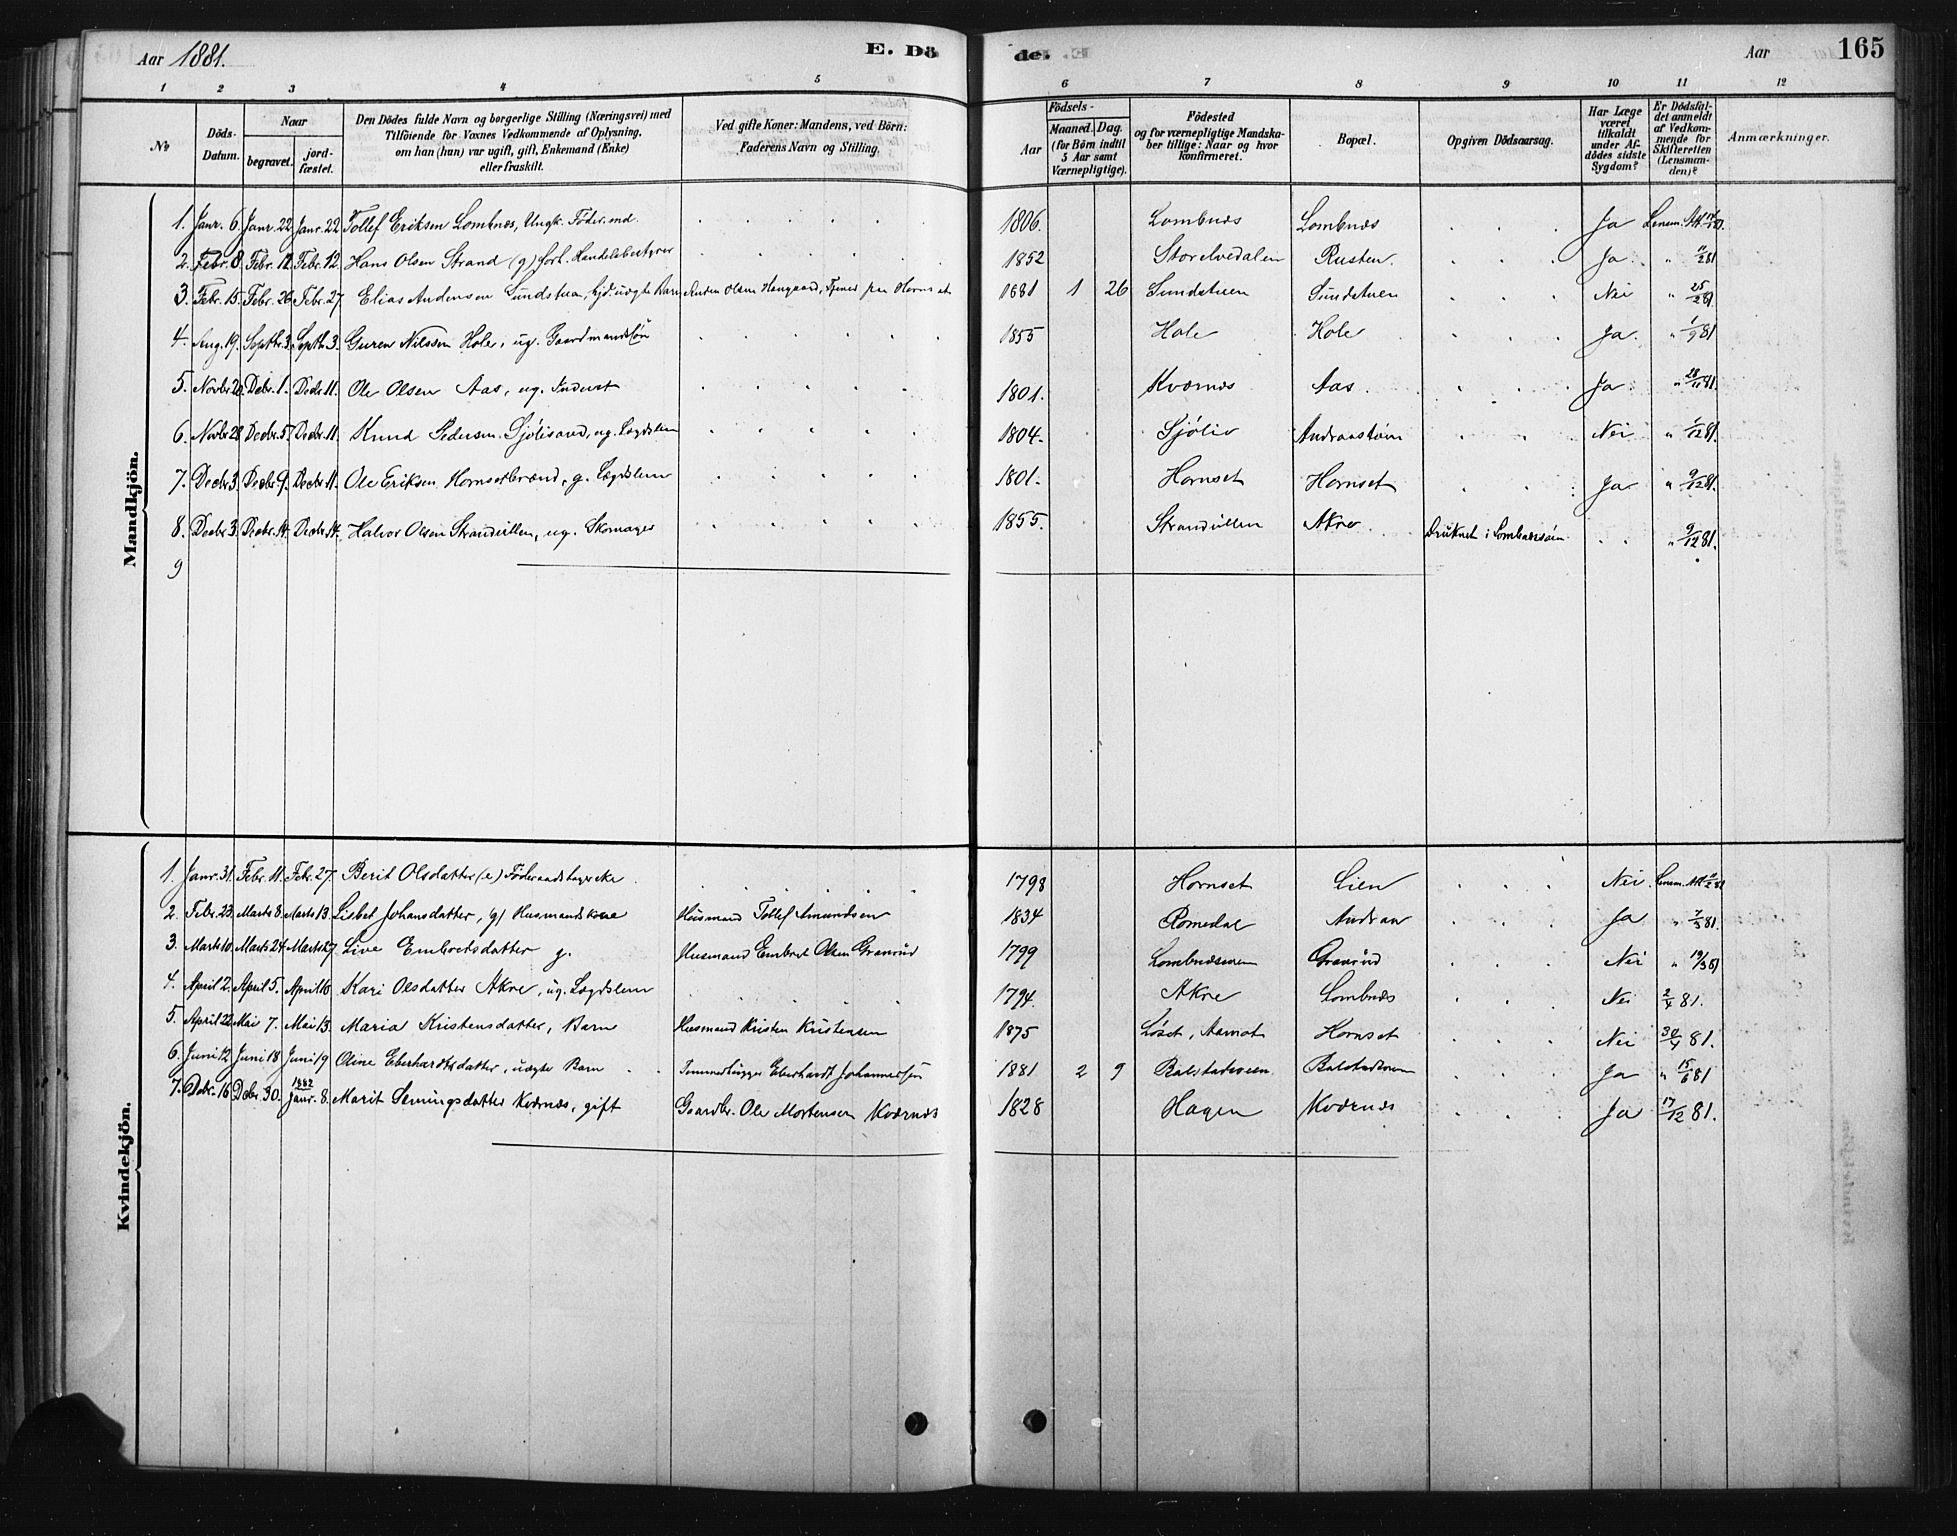 Aar 1881. E. Dö de. Aar 165
1 2 3 4 5 6 7 8 9 10 11 12
No
Döds-Datum.
Naar
begravet.
jord-fæstet.
Den Dödes fulde Navn og borgerlige Stilling (Næringsvei) med
Tilföiende for Voxnes Vedkommende af Oplysning,
om han (hun) var ugift, gift, Enkemand (Enke)
eller fraskilt.
Ved gifte Koner: Mandens, ved Börn:
Faderens Navn og Stilling.
Födsels-
Aar
Maaned. Dag.
(for Börn indtil
5 Aar samt
Værnepligtige).
Födested
og for værnepligtige Mandska-
ber tillige: Naar og hvor
konfirmeret.
Bopæl.
Opgiven Dödsaarsag.
Har Læge
været
tilkaldt
under Af-
dödes sidste
Sygdom?
Er Dödsfal-
det anmeldt
af Vedkom-
mende for
Skifteretten
(Lensman-
den)?
Anmærkninger.
Mandkjön.
1. Janr. 6. Janr. 22 Janr. 22 Tollef Eriksen Lombnæs, Ungk. 1806. Lombnæs Lombnæs Ja Lensm. Att
2. Febr. 8. Febr. 12. Febr. 12. Hans Olsen Strand (g) forh. Handelsbestyrer 1852 Storelvedalen Rusten. Ja " 11/2 81
3. Febr. 15. Febr. 26. Febr. 27 Elias Andersen Sundstuen, Gjd. uægte Barn Olsen Haugaard, Tjener paa Hornset 1881 1 26 Sundstuen Sundstuen Nei " 25/2 81
4. Aug. 19. Septbr. 3. Septbr. 3. Guren Nilssen Hole, ug. Gaardmandssøn 1855 Hole Hole Ja. " 1/9 81
5. Novbr. Debr. 1. Decbr. 11. Ole Olsen Aas, ug. Inderst 1801. Kværnæs Aas Ja " 28/11 81.
6. Novbr. 28 Decbr. 5. Decbr. 11. Knud Pedersen Sjølisand, ug. Lægdslem 1804. Sjøliv Nei " 1/12 81.
7. Decbr. 3. Decbr. 9. Decbr. 11. Ole Eriksen Hornsetbrænd, g. Lægdslem 1801. Hornset Hornset Ja " 9/12 81.
8. Decbr. 3. Decbr. 14. Decbr. 14. Halvor Olsen Strandvillen, ug. Skomager 1855. Strandvillen Akre Druknet i " 9/12 81.
9
Kvindekjön.
1. Janr. 31. Febr. 11. Febr. 27. Berit Olsdatter (e) 1798 Hornset Lien Nei Lensm. Att
2. Febr. 23. Marts 8. Marts 13. Lisbet Johansdatter, (g) Husmandskone Husmand Tollef Amundsen 1834 Romedal Andraa Ja " 7/3 81.
3. Marts 10. Marts 24. Marts 27. Live Embretsdatter g. Husmand Embret Olsen Granrud 1799 Granrud Nei " 19/3 81
4. April 2. April 5. April 18 Kari Olsdatter Akre, ug. Lægdslem 1794. Akre Lombnæs Nei 2/4 81.
5. April 22 Mai 7. Mai 13. Maria Kristensdatter, Barn Husmand Kristen Kristensen 1875 Løset, Aamot Hornset Nei 30/4 81.
6. Juni 12 Juni 18 Juni 19 Oline Eberhardtsdatter, uægte Barn Tømmerhugger Eberhardt Johannessen 1881 2 9 Balstadmoen Balstadmoen Ja " 15/6 81
7. Decbr. 16 Decbr. 30. 1882 Janr. 8. Marit Semingsdatter Kværnæs, gift Gaardbr. Ole Mortensen Kværnæs 1828 Hagen Kværnæs Ja 17/12 81.